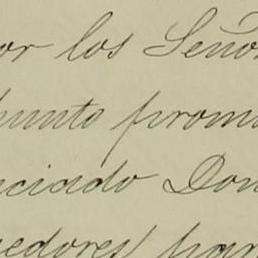 or los Seño
punto prom
nciado Don
edores par